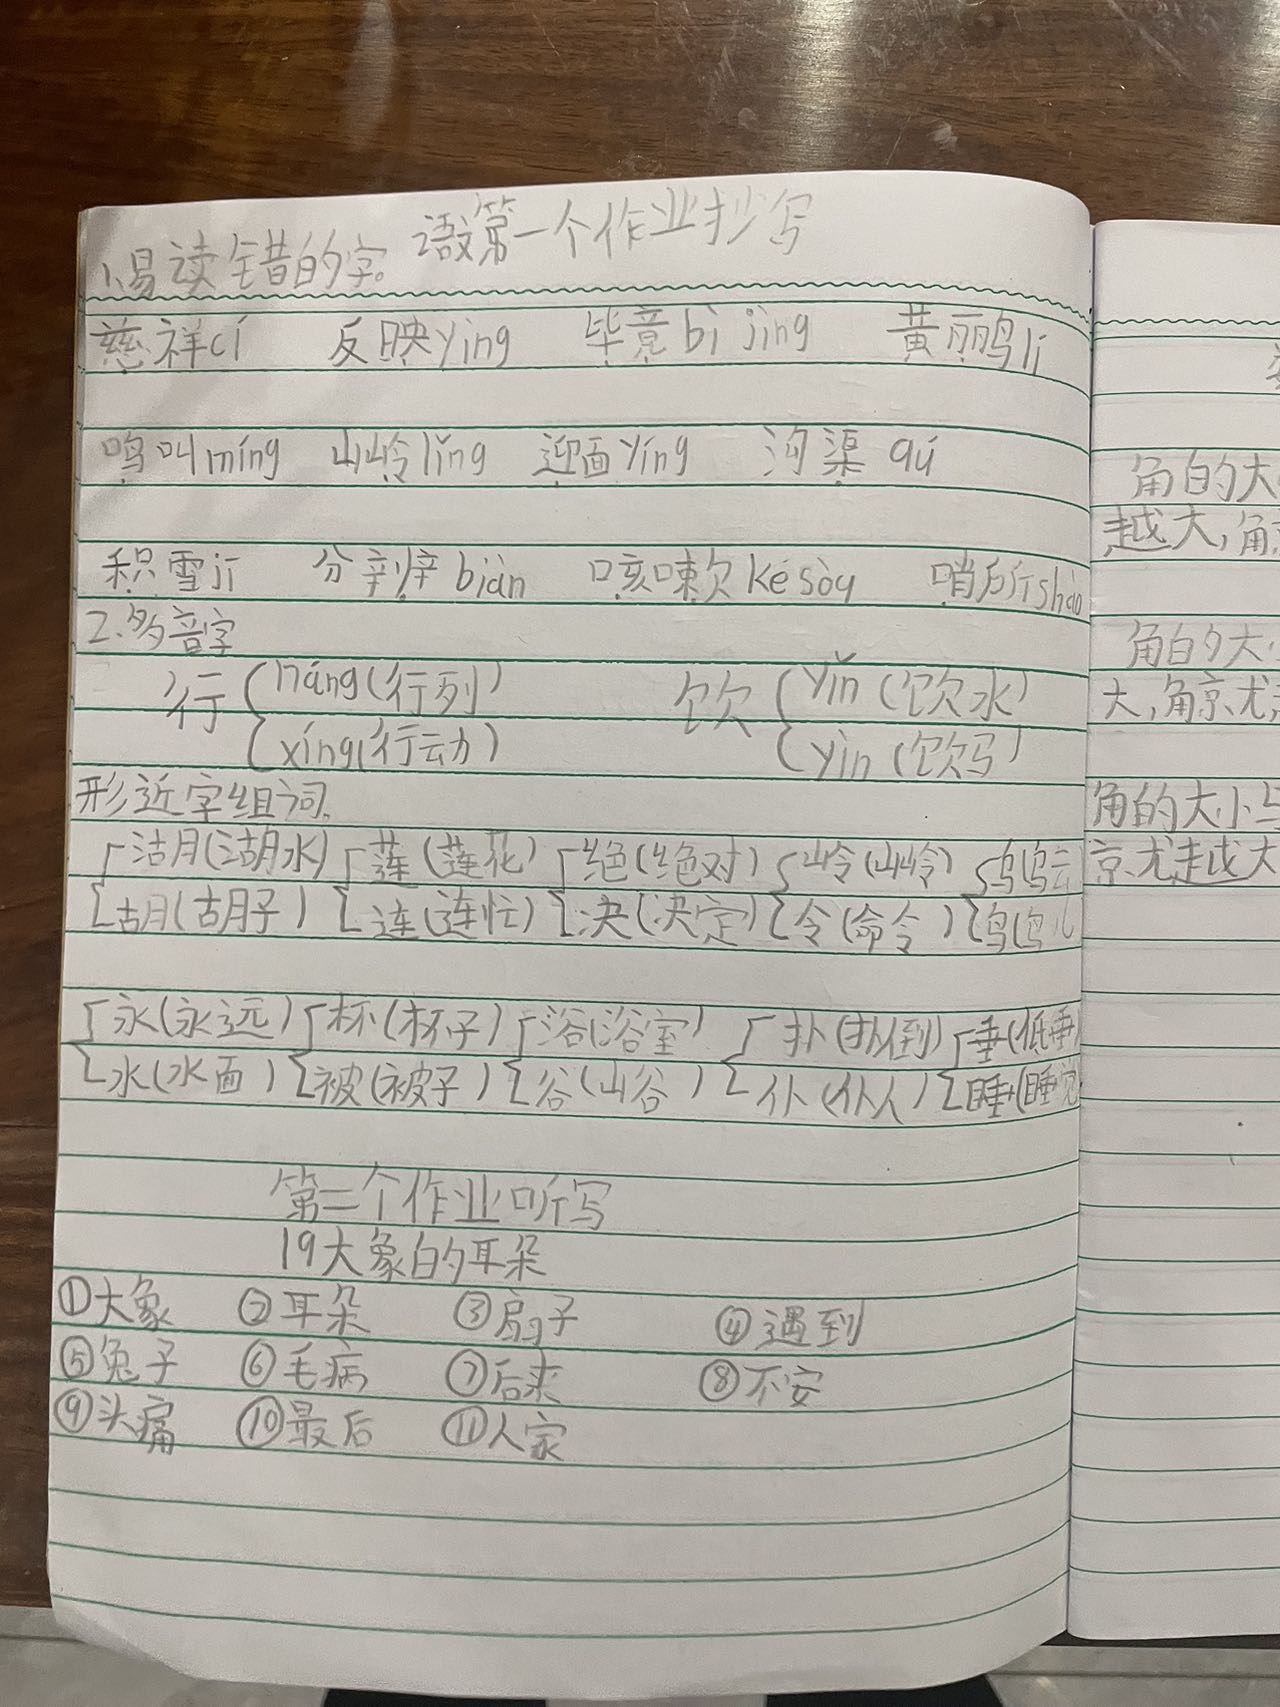 语文第一个作业抄写
1.易读错的字。
慈祥cí 反映yìng 毕竟bì jìng 黄鹂lí
鸣叫míng 山岭lǐng 迎面yíng 沟渠qú
积雪jī 分辨biàn 咳嗽ké sòu 哨所shào
2.多音字
行{háng(行列) 饮{yǐn(饮水)
xíng(行动) yìn(饮马)
形近字组词。
湖(湖水) 莲(莲花) 绝(绝对) 岭(山岭) 乌(乌云
胡(胡子) 连(连忙) 决(决定) 令(命令) 鸟(鸟儿
永(永远) 杯(杯子) 浴(浴室) 扑(扑倒) 垂(低垂)
水(水面) 被(被子) 谷(山谷) 仆(仆人) 睡(睡觉
第二个作业听写
19大象的耳朵
①大象 ②耳朵 ③扇子 ④遇到
⑤兔子 ⑥毛病 ⑦后来 ⑧不安
⑨头痛 ⑩最后 ⑪人家
角的大
越大,角
角的大小
大,角就
角的大小与
就越大